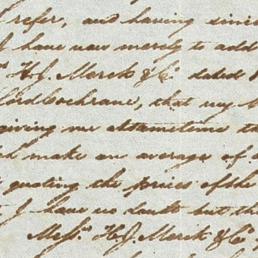 refer, and having since
I have now merely to add
H. J. Merck & Co. dated
Lord Cochrane, that my
giving me at the same time
make an average of
quoting the prices of the
I have no doubt but the
Messrs. H. J. Merck & Co.